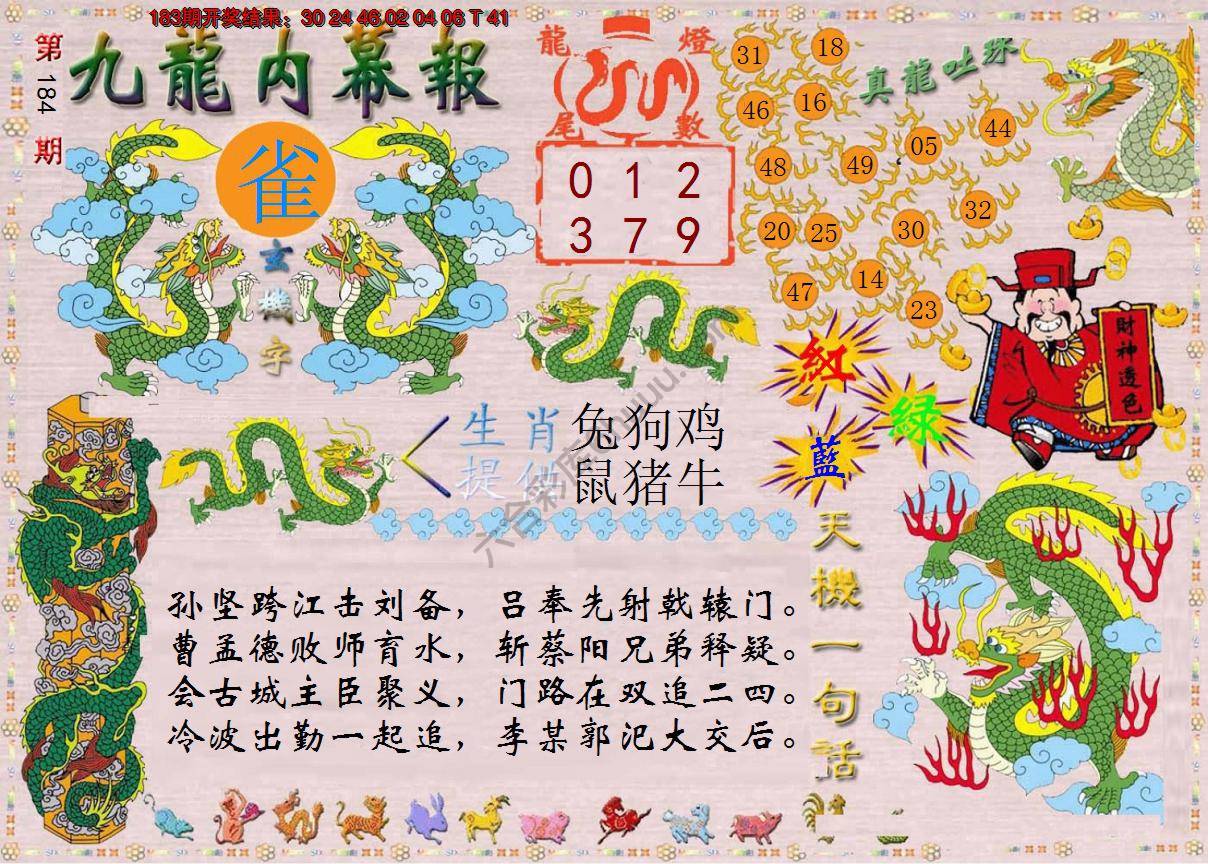 183期开奖结果：30 24 46 02 04 06 T 41
第184期
九龍内幕報
雀
玄機字
龍燈
尾數
0 1 2
3 7 9
真龍吐珠
31 18
46 16
48 49 05 44
20 25 30 32
47 14 23
財神透色
紅
綠
藍
生肖 兔狗鸡
提供 鼠猪牛
六合彩库
天機一句話
孙坚跨江击刘备，吕奉先射戟辕门。
曹孟德败师育水，斩蔡阳兄弟释疑。
会古城主臣聚义，门路在双追二四。
冷波出勤一起追，李某郭汜大交后。